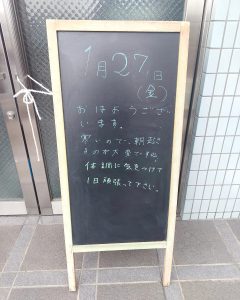 1月27日
(金)
おはようござい
います。
寒いので、朝起き
るのが大変ですね。
体調に気をつけて
1日頑張って下さい。